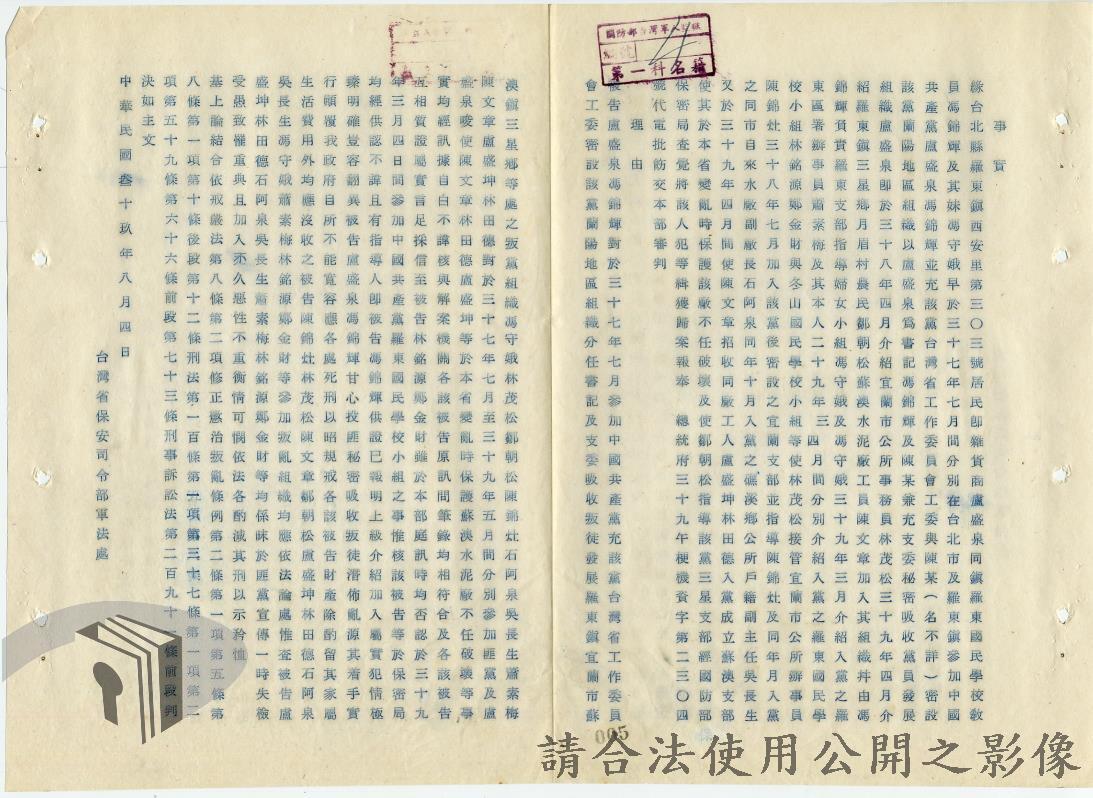 國防部台灣軍人監獄
第一科名籍
事實
緣台北縣羅東鎮西安里第三〇三號居民卽雜貨商盧盛泉同鎮羅東國民學校敎
員馮錦輝及其妹馮守娥早於三十七年七月間分別在台北市及羅東鎮參加中國
共產黨盧盛泉馮錦輝並充該黨台灣省工作委員會工委與陳某(名不詳)密設
該黨蘭陽地區組織以盧盛泉爲書記馮錦輝及陳某兼充支委秘密吸收黨員發展
組織盧盛泉卽於三十八年四月介紹宜蘭市公所事務員林茂松三十九年四月介
紹羅東鎮三星鄉月眉村農民鄒朝松蘇澳水泥廠工員陳文章加入其組織幷由馮
錦輝負責羅東支部指導婦女小組馮守娥及馮守娥三十九年三月介紹入黨之羅
東區署辦事員蕭素梅及其本人二十九年三四月間分別介紹入黨之羅東國民學
校小組林銘源鄭金財與冬山國民學校小組等使林茂松接管宜蘭市公所辦事員
陳錦灶三十八年七月加入該黨後密設之宜蘭支部並指導陳錦灶及同年月入黨
之同市自來水廠副廠長石阿泉同年十月入黨之礁溪鄉公所戶籍副主任吳長生
又於三十九年四月間使陳文章招收同廠工人盧盛坤林田德入黨成立蘇澳支部
使其於本省變亂時保護該廠不任破壞及使鄒朝松指導該黨三星支部經國防部
保密局查覺將該人犯等緝獲歸案報奉 總統府三十九午梗機資字第二三〇四
號代電批飭交本部審判
理由
被告盧盛泉馮錦輝對於三十七年七月參加中國共產黨充該黨台灣省工作委員
會工委密設該黨蘭陽地區組織分任書記及支委吸收叛徒發展羅東鎮宜蘭市蘇
005
澳鎮三星鄉等處之叛黨組織馮守娥林茂松鄒朝松陳錦灶石阿泉吳長生蕭素梅
陳文章盧盛坤林田德對於三十七年七月至三十九年五月間分別參加匪黨及盧
盛泉唆使陳文章林田德盧盛坤等於本省變亂時保護蘇澳水泥廠不任破壞等事
實均經訊據自白不諱核與解案機關各該被告原訊問筆錄均相符合及各該被告
互相質證屬實言足採信至被告林銘源鄭金財雖於本部庭訊時均否認於三十九
年三月四日間參加中國共產黨羅東國民學校小組之事惟核該被告等於保密局
均經供認不諱且有指導人卽被告馮錦輝供證已報明上級介紹加入屬實犯情極
臻明確豈容翻異被告盧盛泉馮錦輝甘心投匪秘密吸收叛徒潛佈亂源其着手實
行顚覆我政府自所不能寬容應各處死刑以昭規戒各該被告財產除酌留其家屬
生活費用外均應沒收之被告陳錦灶林茂松陳文章鄒朝松盧盛坤林田德石阿泉
吳長生馮守娥蕭素梅林銘源鄭金財等參加叛亂組織均應依法論處惟查被告盧
盛坤林田德石阿泉吳長生蕭素梅林銘源鄭金財等均係昧於匪黨宣傳一時失檢
受愚致罹重典且加入不久惡性不重衡情可憫依法各酌減其刑以示矜恤
基上論結合依戒嚴法第八條第二項修正懲治叛亂條例第二條第一項第五條第
八條第一項第十條後段第十二條刑法第一百條第一項第三十七條第一項第二
項第五十九條第六十六條前段第七十三條刑事訴訟法第二百九十一條前段判
決如主文
中華民國叁十玖年八月四日
台灣省保安司令部軍法處
請合法使用公開之影像